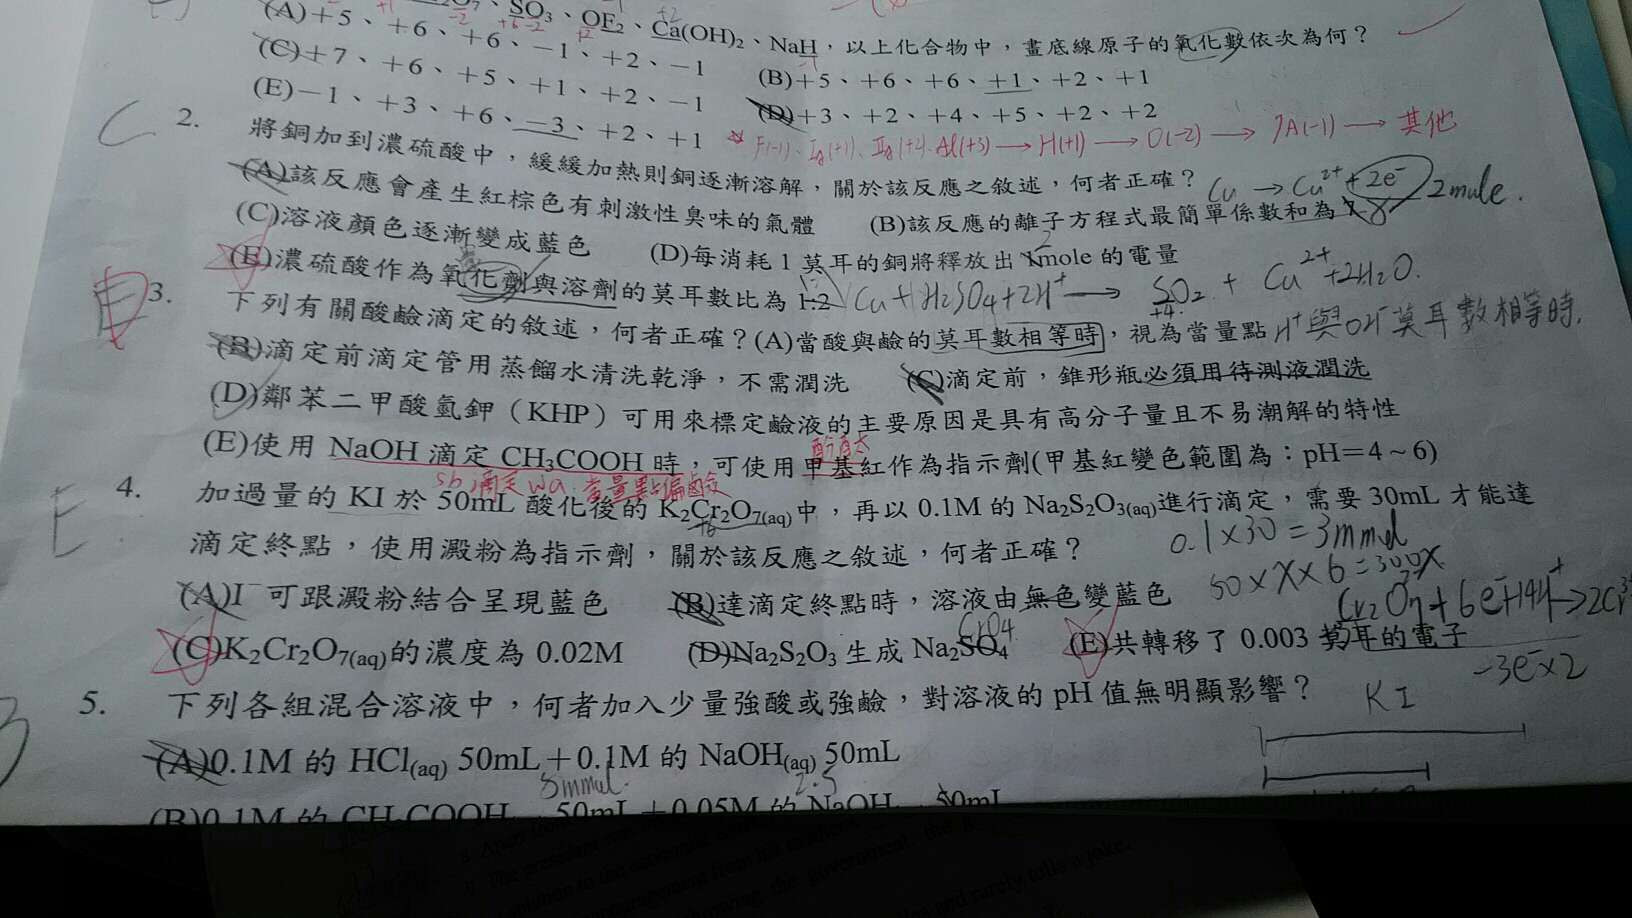 SO₃、OF₂、Ca(OH)₂、NaH，以上化合物中，畫底線原子的氧化數依次為何？
(A)+5、+6、+6、−1、+2、−1
(B)+5、+6、+6、+1、+2、+1
(C)+7、+6、+5、+1、+2、−1
(D)+3、+2、+4、+5、+2、+2
(E)−1、+3、+6、−3、+2、+1
H(+1) → O(-2) → 7A(-1) → 其他
C
2. 將銅加到濃硫酸中，緩緩加熱則銅逐漸溶解，關於該反應之敘述，何者正確？
Cu → Cu²⁺ + 2e⁻ 2mole.
(A)該反應會產生紅棕色有刺激性臭味的氣體 (B)該反應的離子方程式最簡單係數和為 8
(C)溶液顏色逐漸變成藍色 (D)每消耗 1 莫耳的銅將釋放出 1mole 的電量
2
(E)濃硫酸作為氧化劑與溶劑的莫耳數比為 1:2
Cu + H₂SO₄ + 2H⁺ → SO₂ + Cu²⁺ + 2H₂O.
+4.
E
3. 下列有關酸鹼滴定的敘述，何者正確？(A)當酸與鹼的莫耳數相等時，視為當量點
H⁺與OH⁻莫耳數相等時.
(B)滴定前滴定管用蒸餾水清洗乾淨，不需潤洗 (C)滴定前，錐形瓶必須用待測液潤洗
(D)鄰苯二甲酸氫鉀（KHP）可用來標定鹼液的主要原因是具有高分子量且不易潮解的特性
酚酞
(E)使用 NaOH 滴定 CH₃COOH 時，可使用甲基紅作為指示劑(甲基紅變色範圍為：pH＝4～6)
sb 滴定 wa. 當量點偏鹼
E
4. 加過量的 KI 於 50mL 酸化後的 K₂Cr₂O₇(aq)中，再以 0.1M 的 Na₂S₂O₃(aq)進行滴定，需要 30mL 才能達
+6
滴定終點，使用澱粉為指示劑，關於該反應之敘述，何者正確？
0.1×30=3mmol
50×X×6=300X
(A)I⁻可跟澱粉結合呈現藍色 (B)達滴定終點時，溶液由無色變藍色
Cr₂O₇ + 6e⁻ + 14H⁺ → 2Cr³⁺
CrO₄
(C)K₂Cr₂O₇(aq)的濃度為 0.02M (D)Na₂S₂O₃ 生成 Na₂SO₄ (E)共轉移了 0.003 莫耳的電子
-3e⁻×2
5. 下列各組混合溶液中，何者加入少量強酸或強鹼，對溶液的 pH 值無明顯影響？
KI
(A)0.1M 的 HCl(aq) 50mL＋0.1M 的 NaOH(aq) 50mL
5mmol. 2.5
(B)0.1M 的 CH₃COOH 50mL＋0.05M 的 NaOH 50mL